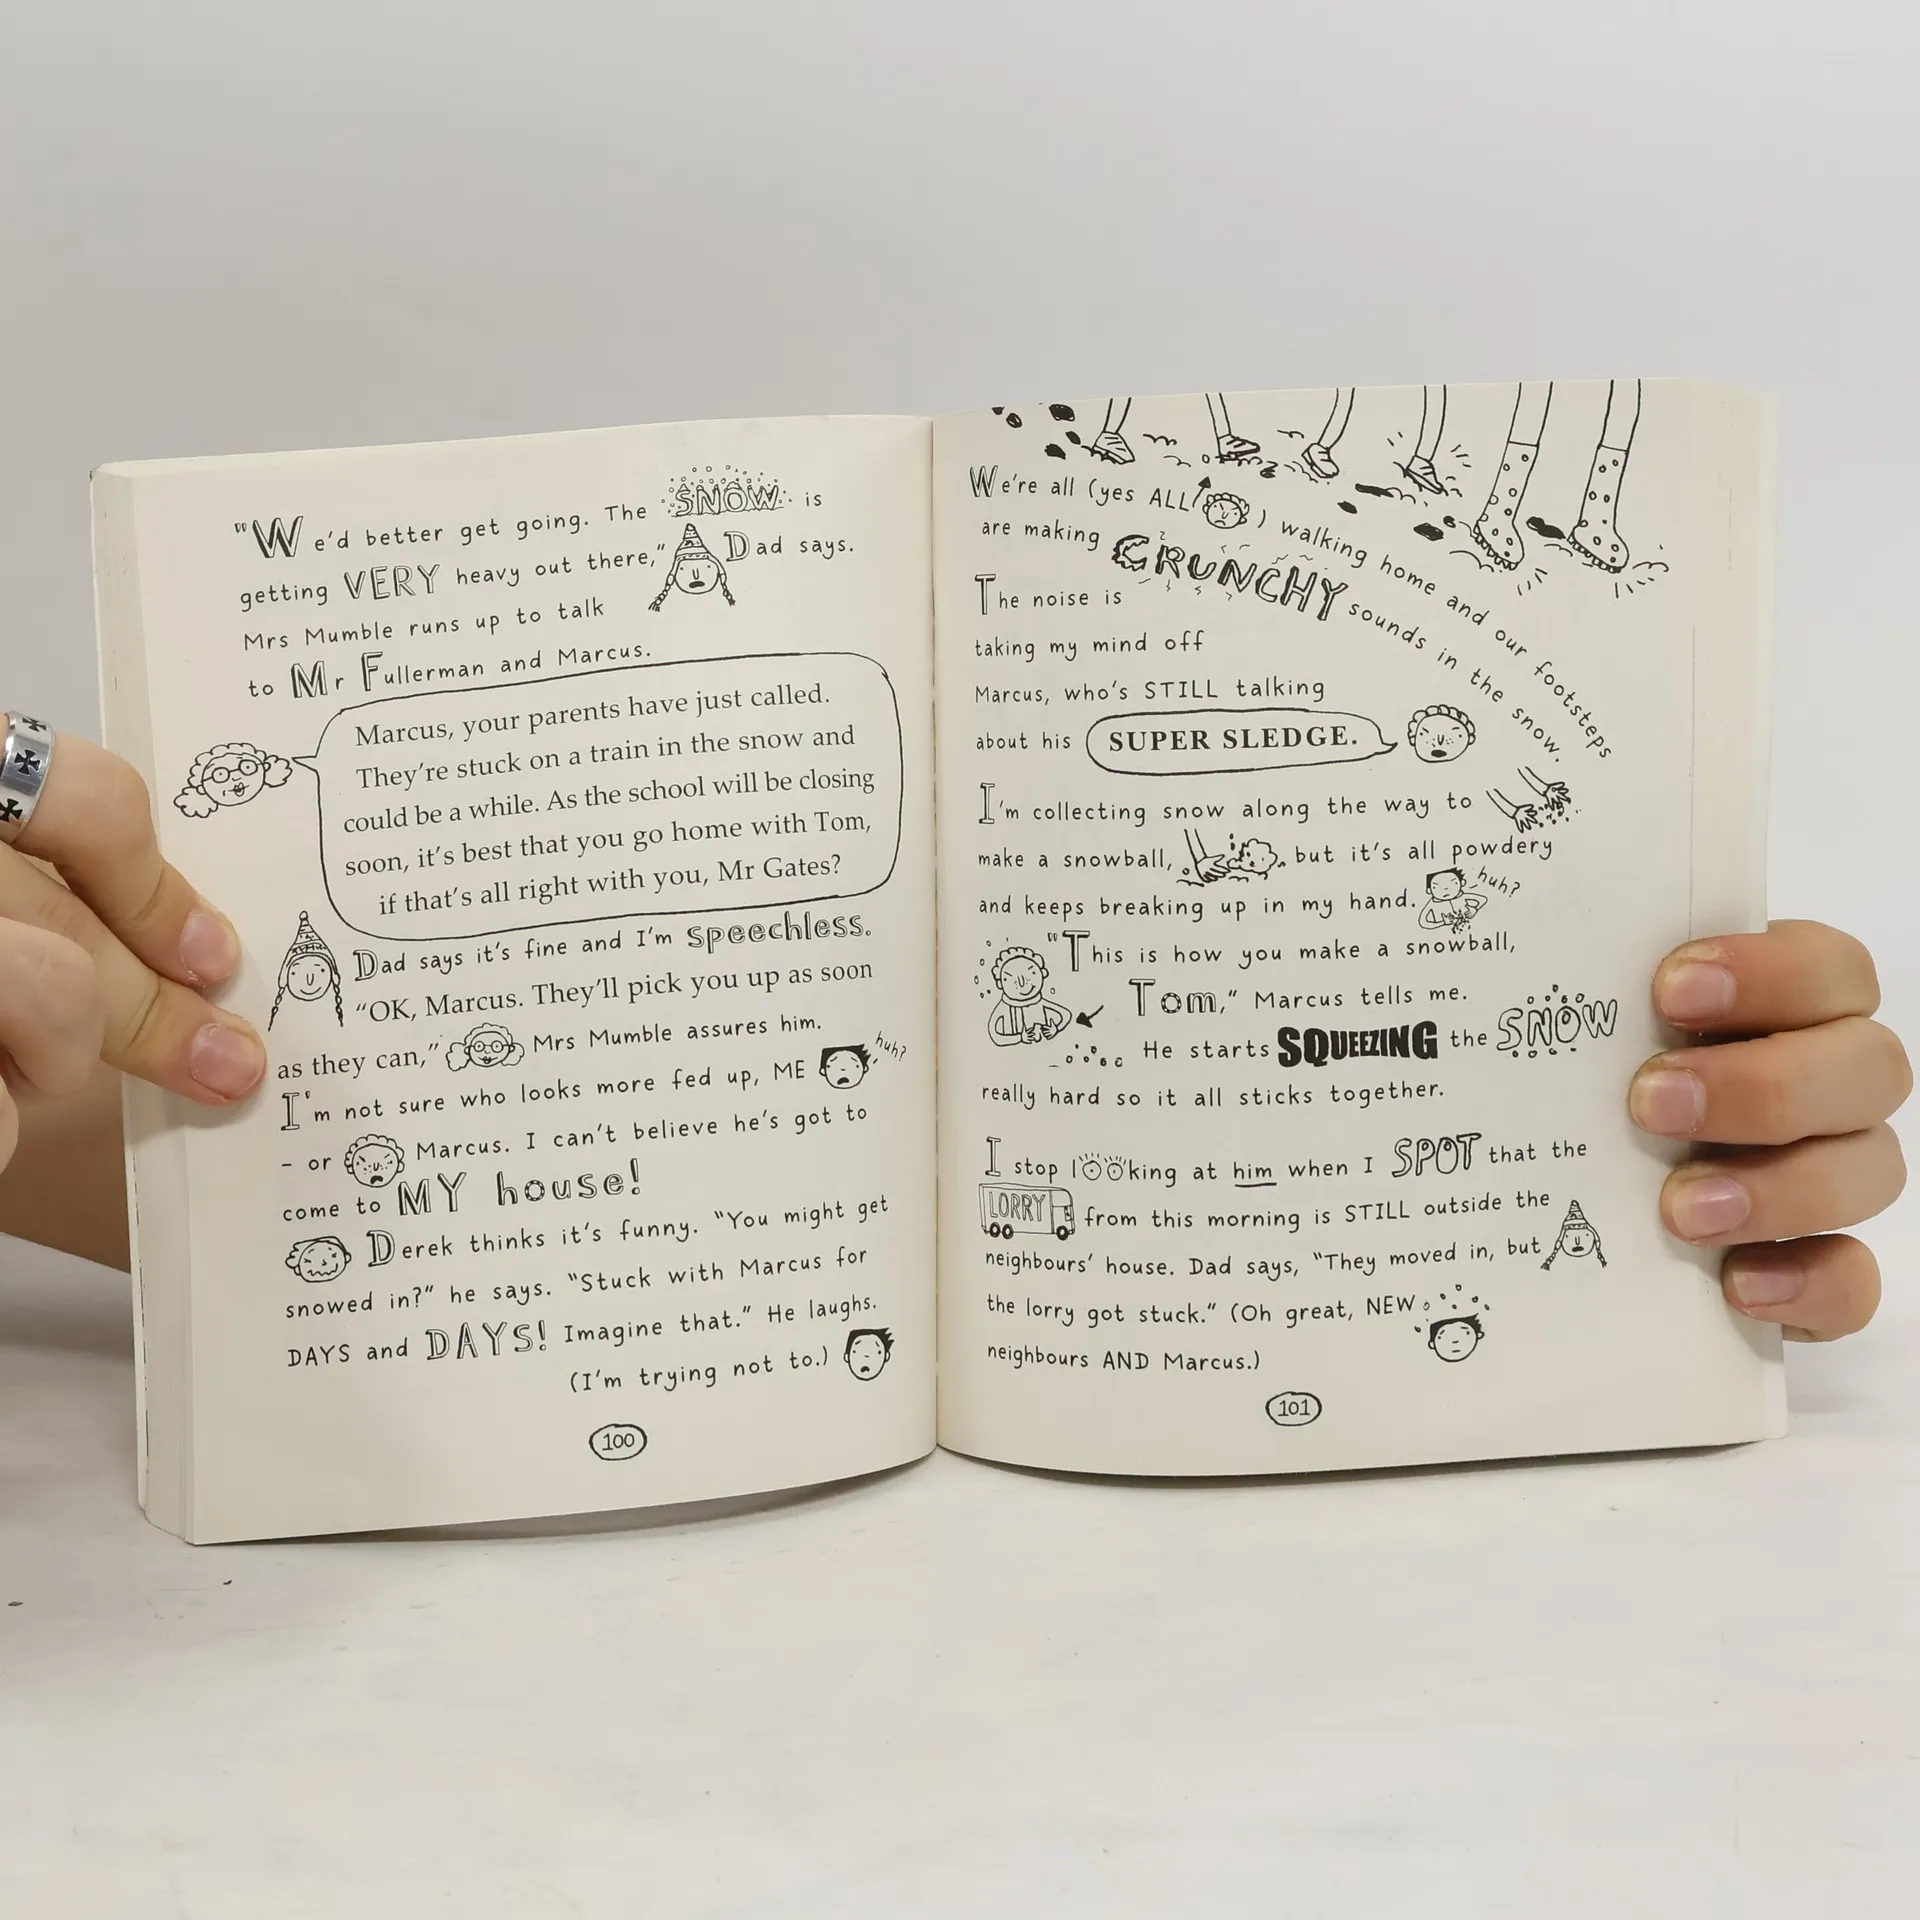 "We'd better get going. The SNOW is
getting VERY heavy out there," Dad says.
Mrs Mumble runs up to talk
to Mr Fullerman and Marcus.
Marcus, your parents have just called.
They're stuck on a train in the snow and
could be a while. As the school will be closing
soon, it's best that you go home with Tom,
if that's all right with you, Mr Gates?
Dad says it's fine and I'm speechless.
"OK, Marcus. They'll pick you up as soon
as they can," Mrs Mumble assures him.
I'm not sure who looks more fed up, ME
huh?
- or Marcus. I can't believe he's got to
come to MY house!
Derek thinks it's funny. "You might get
snowed in?" he says. "Stuck with Marcus for
DAYS and DAYS! Imagine that." He laughs.
(I'm trying not to.)
100
We're all (yes ALL) walking home and our footsteps
are making CRUNCHY sounds in the snow.
The noise is
taking my mind off
Marcus, who's STILL talking
about his SUPER SLEDGE.
I'm collecting snow along the way to
make a snowball, but it's all powdery
and keeps breaking up in my hand.
huh?
"This is how you make a snowball,
Tom," Marcus tells me.
He starts SQUEEZING the SNOW
really hard so it all sticks together.
I stop looking at him when I SPOT that the
LORRY from this morning is STILL outside the
neighbours' house. Dad says, "They moved in, but
the lorry got stuck." (Oh great, NEW
neighbours AND Marcus.)
101